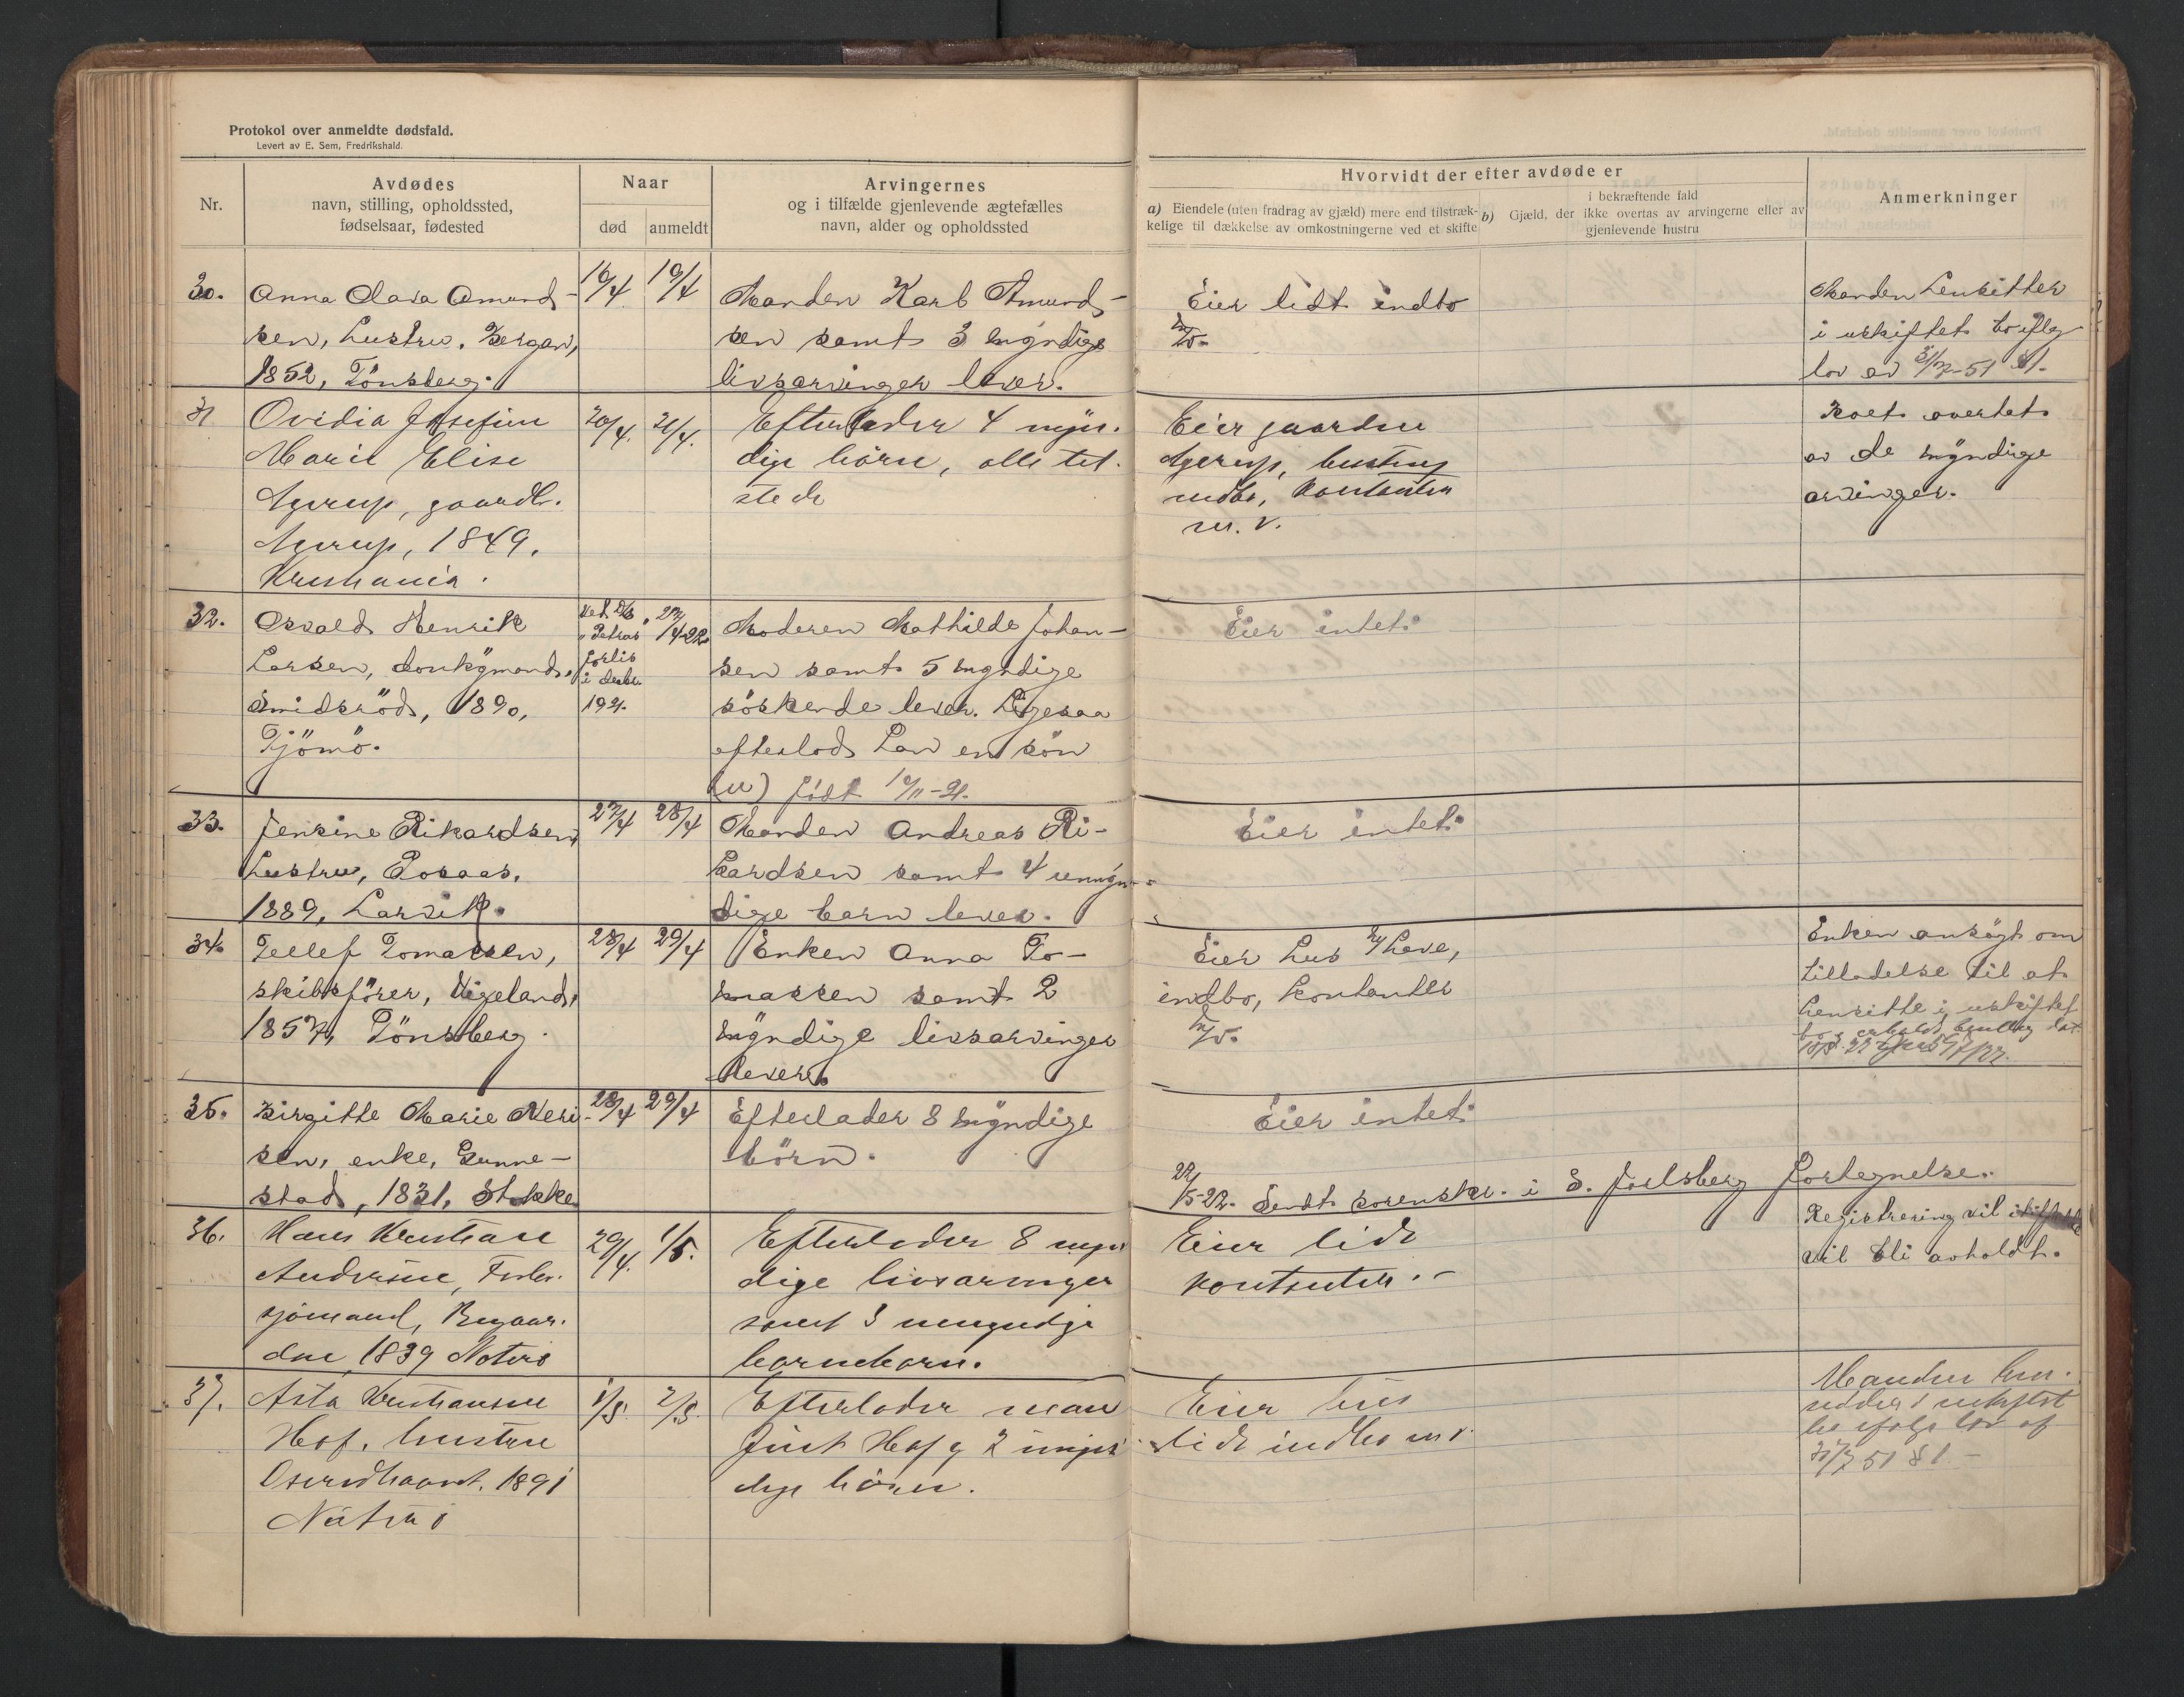 Protokol over anmeldte dødsfald.
Levert av E. Sem, Fredrikshald.
Nr.
Avdødes
navn, stilling, opholdssted,
fødselsaar, fødested
Naar
død
anmeldt
Arvingernes
og i tilfælde gjenlevende ægtefælles
navn, alder og opholdssted
Hvorvidt der efter avdøde er
a) Eiendele (uten fradrag av gjæld) mere end tilstræk-
kelige til dækkelse av omkostningerne ved et skifte
i bekræftende fald
b) Gjæld, der ikke overtas av arvingerne eller av
gjenlevende hustru
Anmerkninger
30.
Anna Clara Amund-
sen, hustru, Bergan,
1852, Tönsberg.
16/4
19/4
Manden Karl Amund-
sen samt 3 myndige
livsarvinger lever.
Eier lidt indbo
Manden hensitter
i uskiftet bo iflg
lov av 31/7-51 § 1.
31
Ovidia Josefine
Marie Elise
Agerup, gaardbr.
Agerup, 1849,
Kristiania.
20/4.
21/4.
Efterlader 4 myn-
dige börn, alle til-
stede
Eier gaarden
Agerup,
indbo, kontanter
m. v.
Boet overtat
av de myndige
arvinger.
32.
Osvald Henrik
Larsen, donkymand,
Smidsröd, 1890,
Tjömö.
Petras
forlis
i desbr.
1921.
27/4-22
Moderen Mathilde Johan-
sen samt 5 myndige
söskende lever. Ligesaa
efterlod han en sön
(u) födt 19/11-21.
Eier intet.
33.
Jensine Rikardsen,
hustru, Rosaas,
1889, Larvik.
27/4
28/4
Manden Andreas Ri-
kardsen samt 4 umyn-
dige barn lever.
Eier intet.
34.
Tellef Tomassen,
skibsförer, Vigeland,
1857, Tönsberg.
28/4
29/4
Enken Anna To-
massen samt 2
myndige livsarvinger
lever.
Eier hus m/have,
indbo, kontanter
Enken ansögt om
tilladelse til at
hensitte i uskiftet
bo
35.
Birgitte Marie Neri-
sen, enke, Gunne-
stad, 1831, Stokke
28/4
29/4
Efterlader 8 myndige
börn.
Eier intet.
22/5-22. Sendt sorenskr. i S. Jarlsberg fortegnelse.
36.
Hans Kristian
Andersen, Forhv.
sjömand, Bugaar-
den 1839 Nöterö
29/4.
1/5.
Efterlader 8 myn-
dige livsarvinger
samt 3 umyndige
barnebarn.
Eier lidt
kontanter. -
Registrering vil
vil bli avholdt.
37.
Asta Kristiansen
Hof, hustru
1891
Nöterö
1/5.
2/5.
Efterlader man
Hof og 2 umyn-
dige börn.
Eier hus
lidt indbo m v.
Manden hen-
sidder i uskiftet
bo ifölge lov af
31/7 51 § 1. -